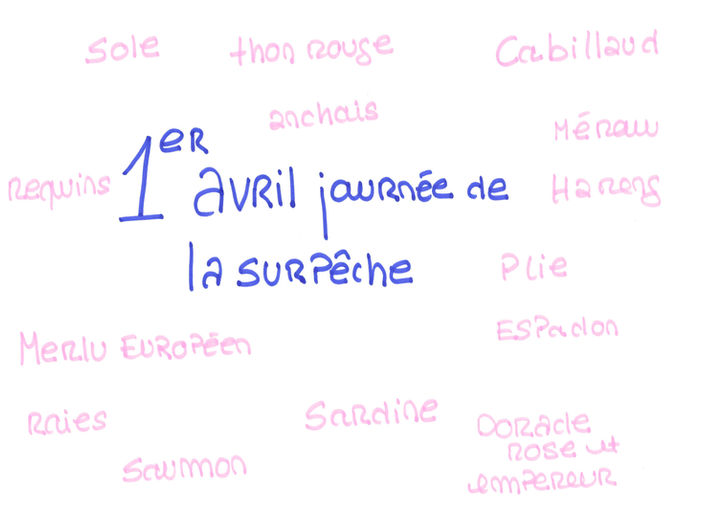 Sole thon rouge Cabillaud
anchais
Mérou
requins 1er avril journée de Harengs
la surpêche
Plie
Espadon
Merlu Européen
Raies Sardine Dorade
rose et
Saumon empereur